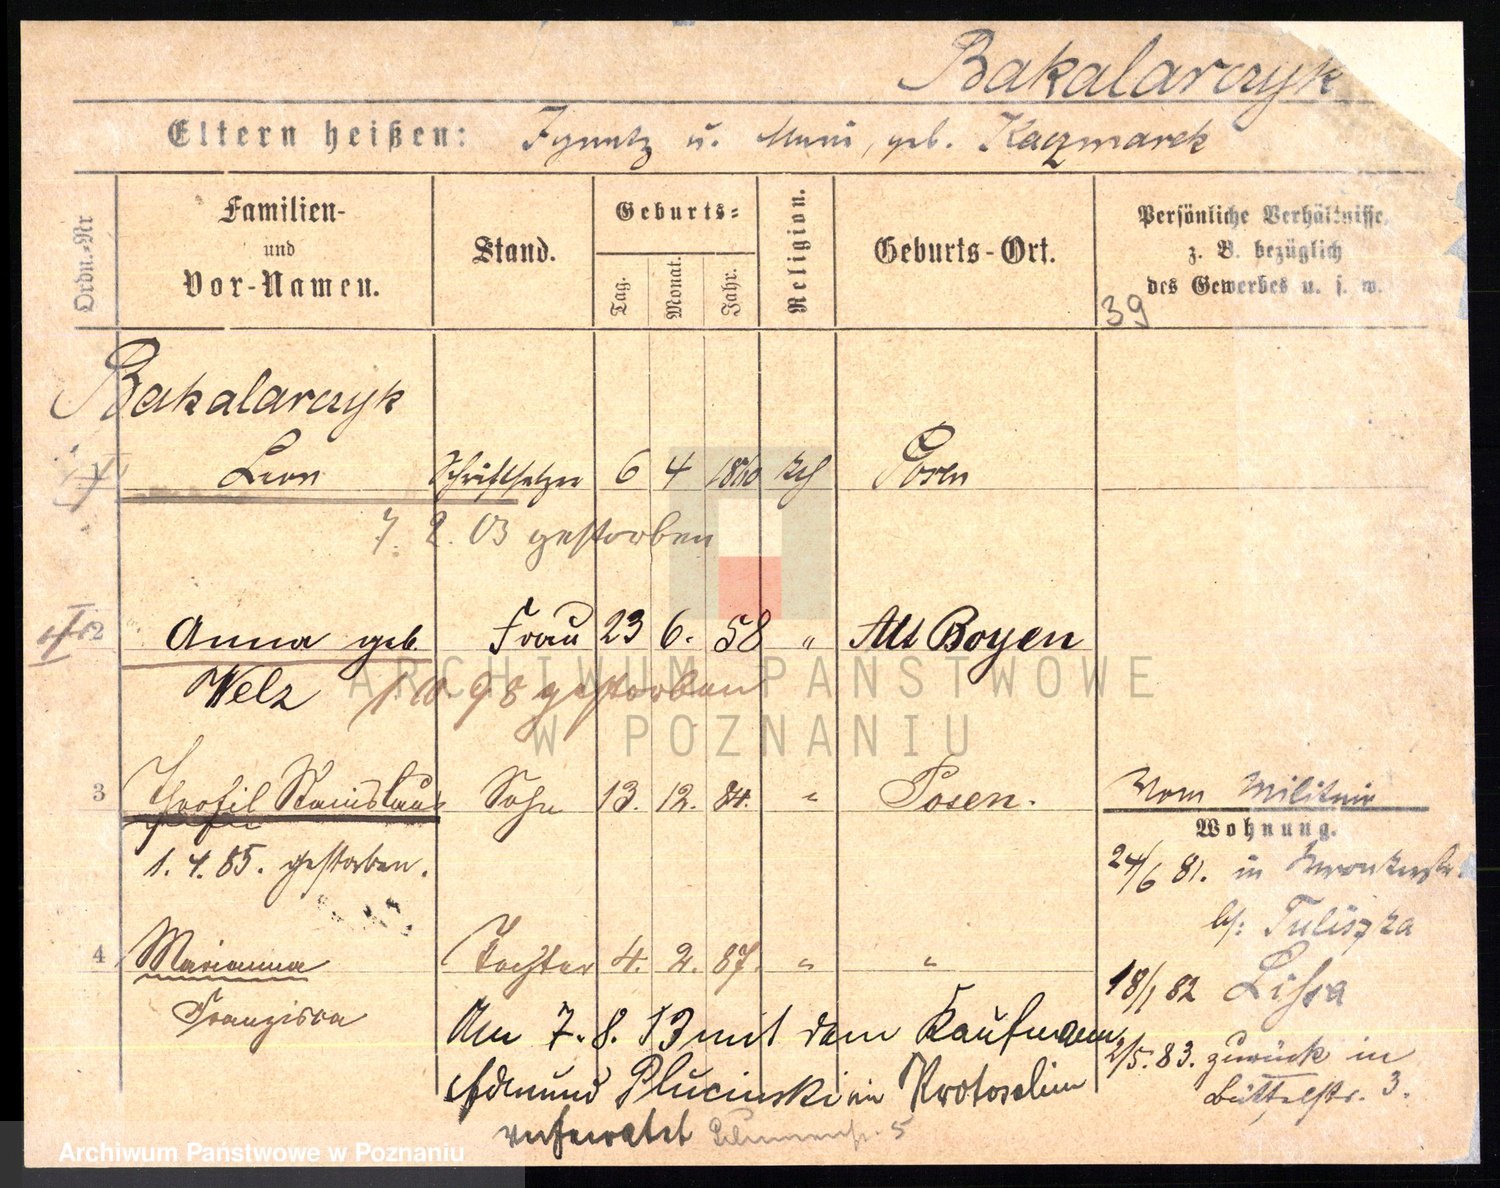 Bakalarczyk
Eltern heißen: Ignatz u. Marie, geb. Kaczmarek
Ordn.-Nr
Familien-
und
Vor-Namen.
Stand.
Geburts-
Tag.
Monat.
Jahr.
Religion.
Geburts-Ort.
Persönliche Verhältnisse,
z. B. bezüglich
des Gewerbes u. s. w.
39
Bakalarczyk
1 Leon Schriftsetzer 6 4 1860 kth Posen
7. 2. 03 gestorben
2 Anna geb. Frau 23 6. 58 " Alt Boyen
Welz gestorben
3 Theofil Stanislaus Sohn 13. 12. 84. " Posen. Vom Militair
1. 4. 85. gestorben.
Wohnung.
24/6 81. in Wronkerstr.
bei Tuliszka
4 Marianna Tochter 4. 2. 87. " "
Franziska
18/1 82 Lissa
2/5. 83. zurück in
Büttelstr. 3.
Am 7. 8. 13 mit dem Kaufmann
Edmund Plucinski in Krotoschin
verheiratet
ARCHIWUM PAŃSTWOWE
W POZNANIU
Archiwum Państwowe w Poznaniu